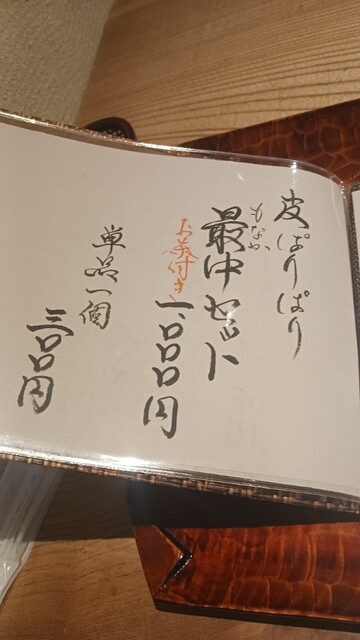 皮ぱりぱり
もなか
最中セット
お茶付き
一、000円
単品一個
三00円